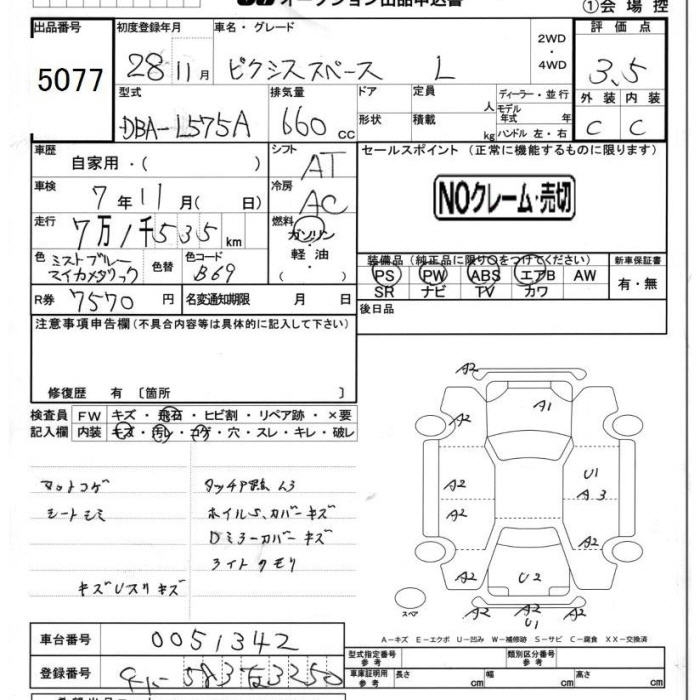 オークション出品申込書 ①会場控
出品番号 初度登録年月 車名・グレード 2WD・4WD 評価点
5077 28 11月 ピクシススペース L 3.5
型式 排気量 ドア 定員 人 ディーラー・並行 外装 内装
DBA-L575A 660 cc 形状 積載 kg モデル年式 年 ハンドル 左・右 C C
車歴 自家用・( ) シフト AT セールスポイント (正常に機能するものに限ります)
車検 7年11月( 日) 冷房 AC NOクレーム・売切
走行 7万1千535km 燃料 ガソリン・軽油・( )
色 ミストブルーマイカメタリック 色替 色コード B69 装備品 (純正品に限り○をつけてください) 新車保証書
PS PW ABS エアB AW 有・無
SR ナビ TV カワ
R券 7570円 名変通知期限 月 日 後日品
注意事項申告欄 (不具合内容等は具体的に記入して下さい)
修復歴 有 〔箇所 〕
検査員記入欄 FW キズ・飛石・ヒビ割・リペア跡・×要
内装 キズ・汚レ・コゲ・穴・スレ・キレ・破レ
マットコゲ
シートシミ ホイルS、カバーキズ
Dミラーカバーキズ
ライトクモリ
キズUスリキズ
A2
A2 A1
A2 U1
A2 A3
A2 A2
A2 U2 A2
スペア A2 A2 U1 A2
A-キズ E-エクボ U-凹み W-補修跡 S-サビ C-腐食 XX-交換済
車台番号 0051342
型式指定番号 参考 類別区分番号 参考
登録番号 583 3250
車庫証明用 参考 長さ cm 幅 cm 高さ cm